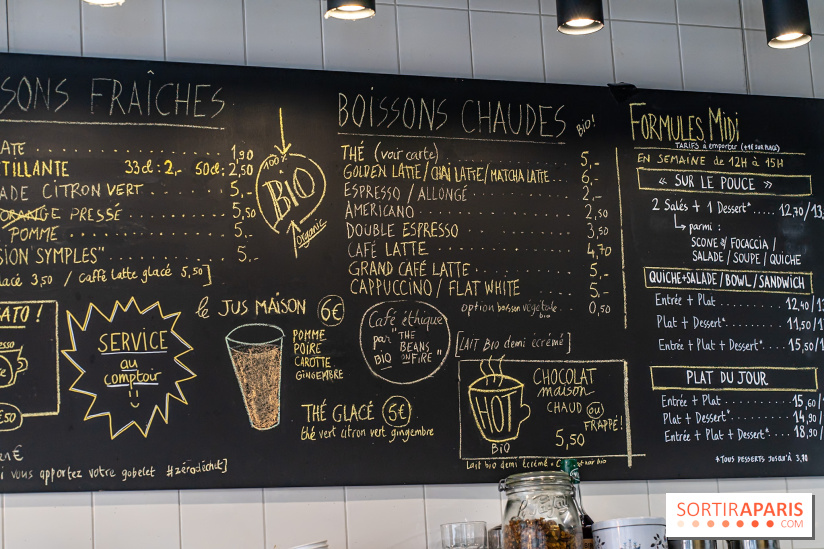 SONS FRAÎCHES
ATE 1,90
TILLANTE 33cl: 2,- 50cl: 2,50
ADE CITRON VERT 5,-
ORANGE PRESSÉ 5,50
POMME 5.-
SION SYMPLES" 5.-
lacé 3,50 / Caffè latte glacé 5,50]
100%
BIO
organic
ATO!
SERVICE
au
comptoir
le JUS MAISON 6€
POMME
POIRE
CAROTTE
GINGEMBRE
THÉ GLACÉ 5€
thé vert citron vert gingembre
i vous apportez votre gobelet #zérodéchet]
BOISSONS CHAUDES BIO!
THÉ (voir carte) 5,-
GOLDEN LATTE/CHAI LATTE/MATCHA LATTE 6,-
ESPRESSO / ALLONGÉ 2,-
AMERICANO 2,50
DOUBLE ESPRESSO 3,50
CAFÉ LATTE 4,70
GRAND CAFÉ LATTE 5,-
CAPPUCCINO / FLAT WHITE 5,-
option boisson végétale bio 0,50
Café éthique
par "THE
BEANS
ON FIRE"
BIO
[LAIT BIO demi écrémé]
HOT
BIO
CHOCOLAT
maison
CHAUD ou
FRAPPÉ!
5,50
Lait bio demi écrémé
FORMULES MIDI
TARIFS à emporter (+1€ SUR PLACE)
EN SEMAINE de 12H à 15H
« SUR LE POUCE »
2 Salés + 1 Dessert* 12,70/13,
parmi :
SCONE / FOCACCIA /
SALADE / SOUPE / QUICHE
QUICHE+SALADE/BOWL/SANDWICH
Entrée + Plat 12,40/13
Plat + Dessert* 11,50/1
Entrée + Plat + Dessert* 15,50/1
PLAT DU JOUR
Entrée + Plat 15,60/
Plat + Dessert* 14,90/
Entrée + Plat + Dessert* 18,90/
*TOUS DESSERTS JUSQU'À 3,90
SORTIRAPARIS
.COM